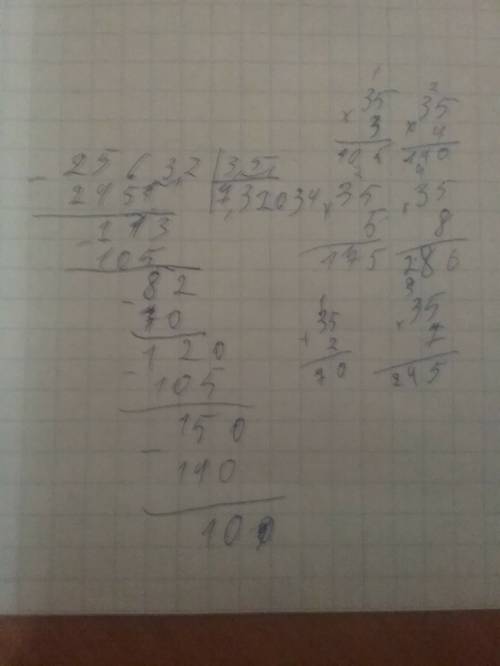 - 25 6 3,2 | 3,5
245 | 7,32034
113
- 105
82
- 70
120
- 105
150
- 140
100
35
× 3
105
35
× 4
140
35
× 5
175
35
× 8
286
35
× 2
70
35
× 7
245